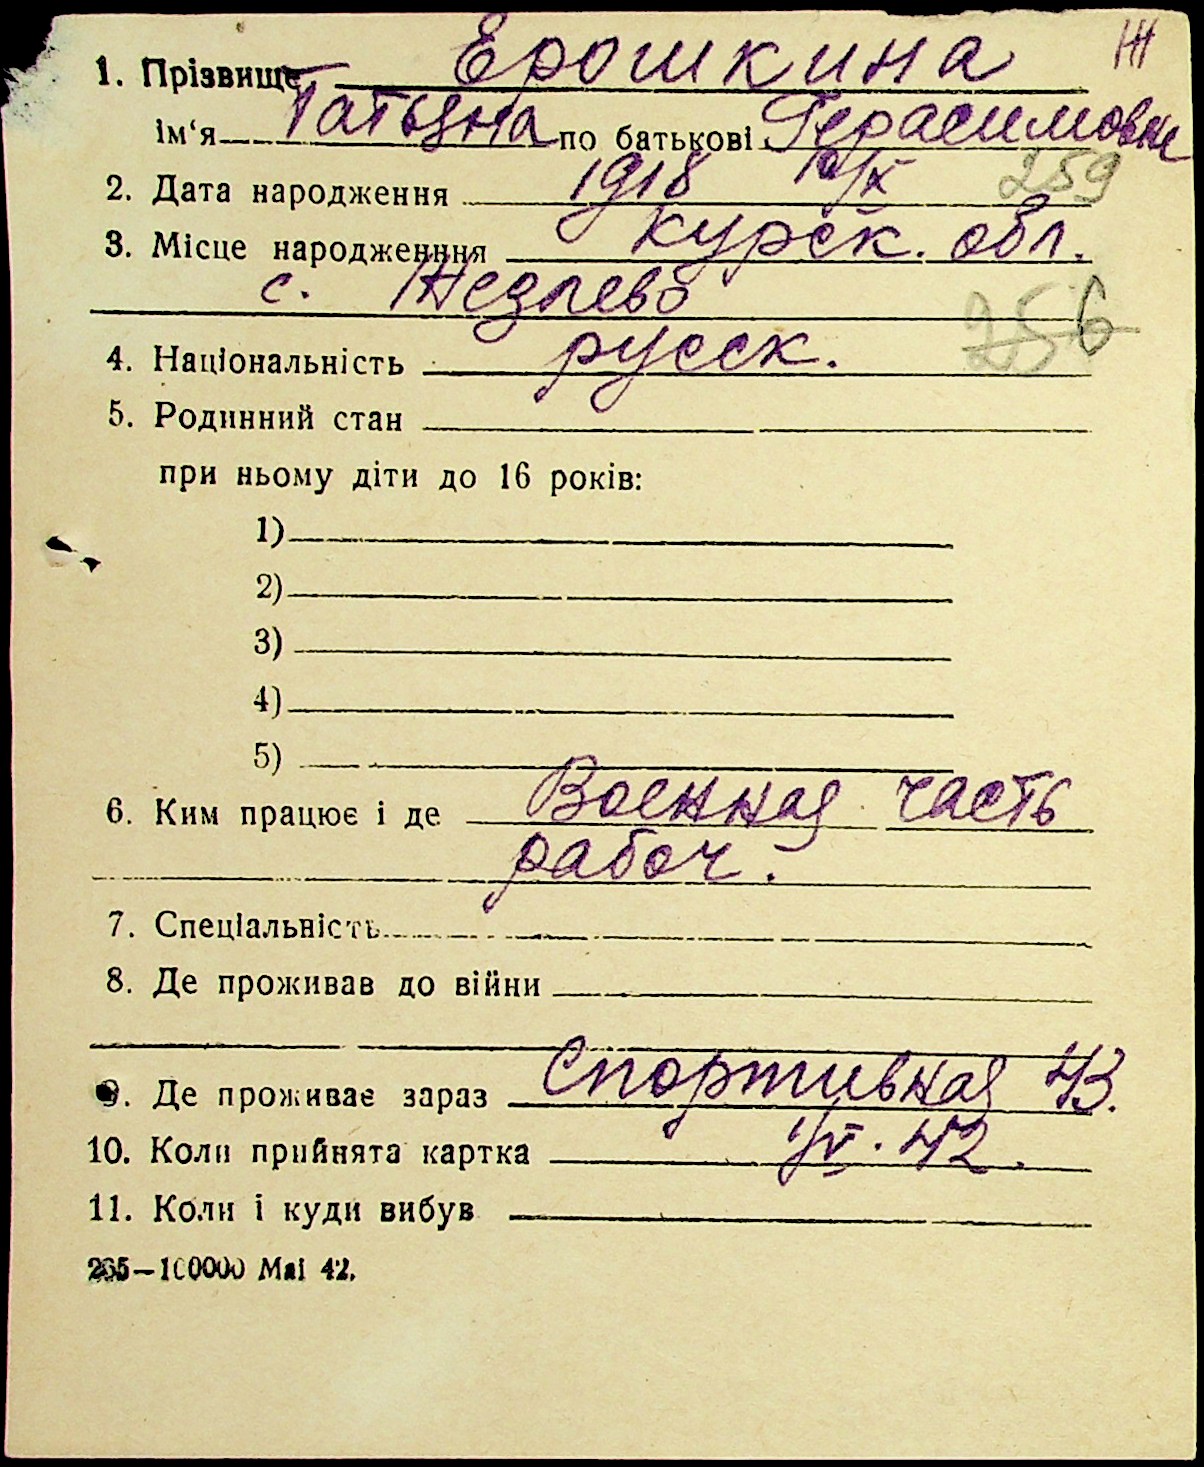 Ж
1. Прізвище Ерошкина
ім‘я Татьяна по батькові Герасимовна
2. Дата народження 1918 10/IX 259
3. Місце народженння Курск. обл.
с.
256
4. Національність русск.
5. Родинний стан
при ньому діти до 16 років:
1)
2)
3)
4)
5)
6. Ким працює і де Военная часть
рабоч.
7. Спеціальність
8. Де проживав до війни
9. Де проживає зараз Спортивная 43.
10. Коли прийнята картка 1/VI. 42.
11. Коли і куди вибув
265—100000 Маі 42.